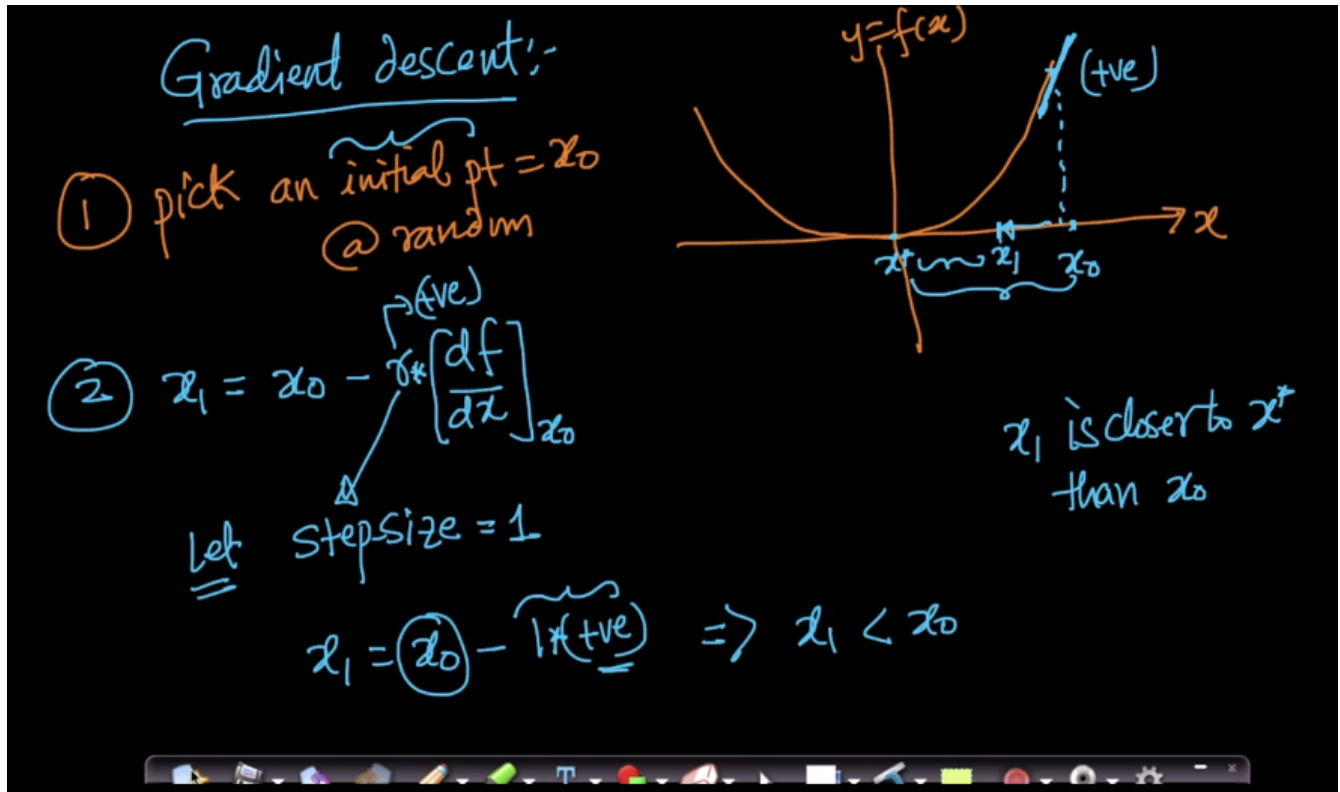 Gradient descent:-
① pick an initial pt = x₀
@ random
(+ve)
② x₁ = x₀ - r * [df/dx]x₀
Let stepsize = 1
x₁ = x₀ - 1*(+ve) => x₁ < x₀
y=f(x)
(+ve)
x
x* x₁ x₀
x₁ is closer to x*
than x₀
T